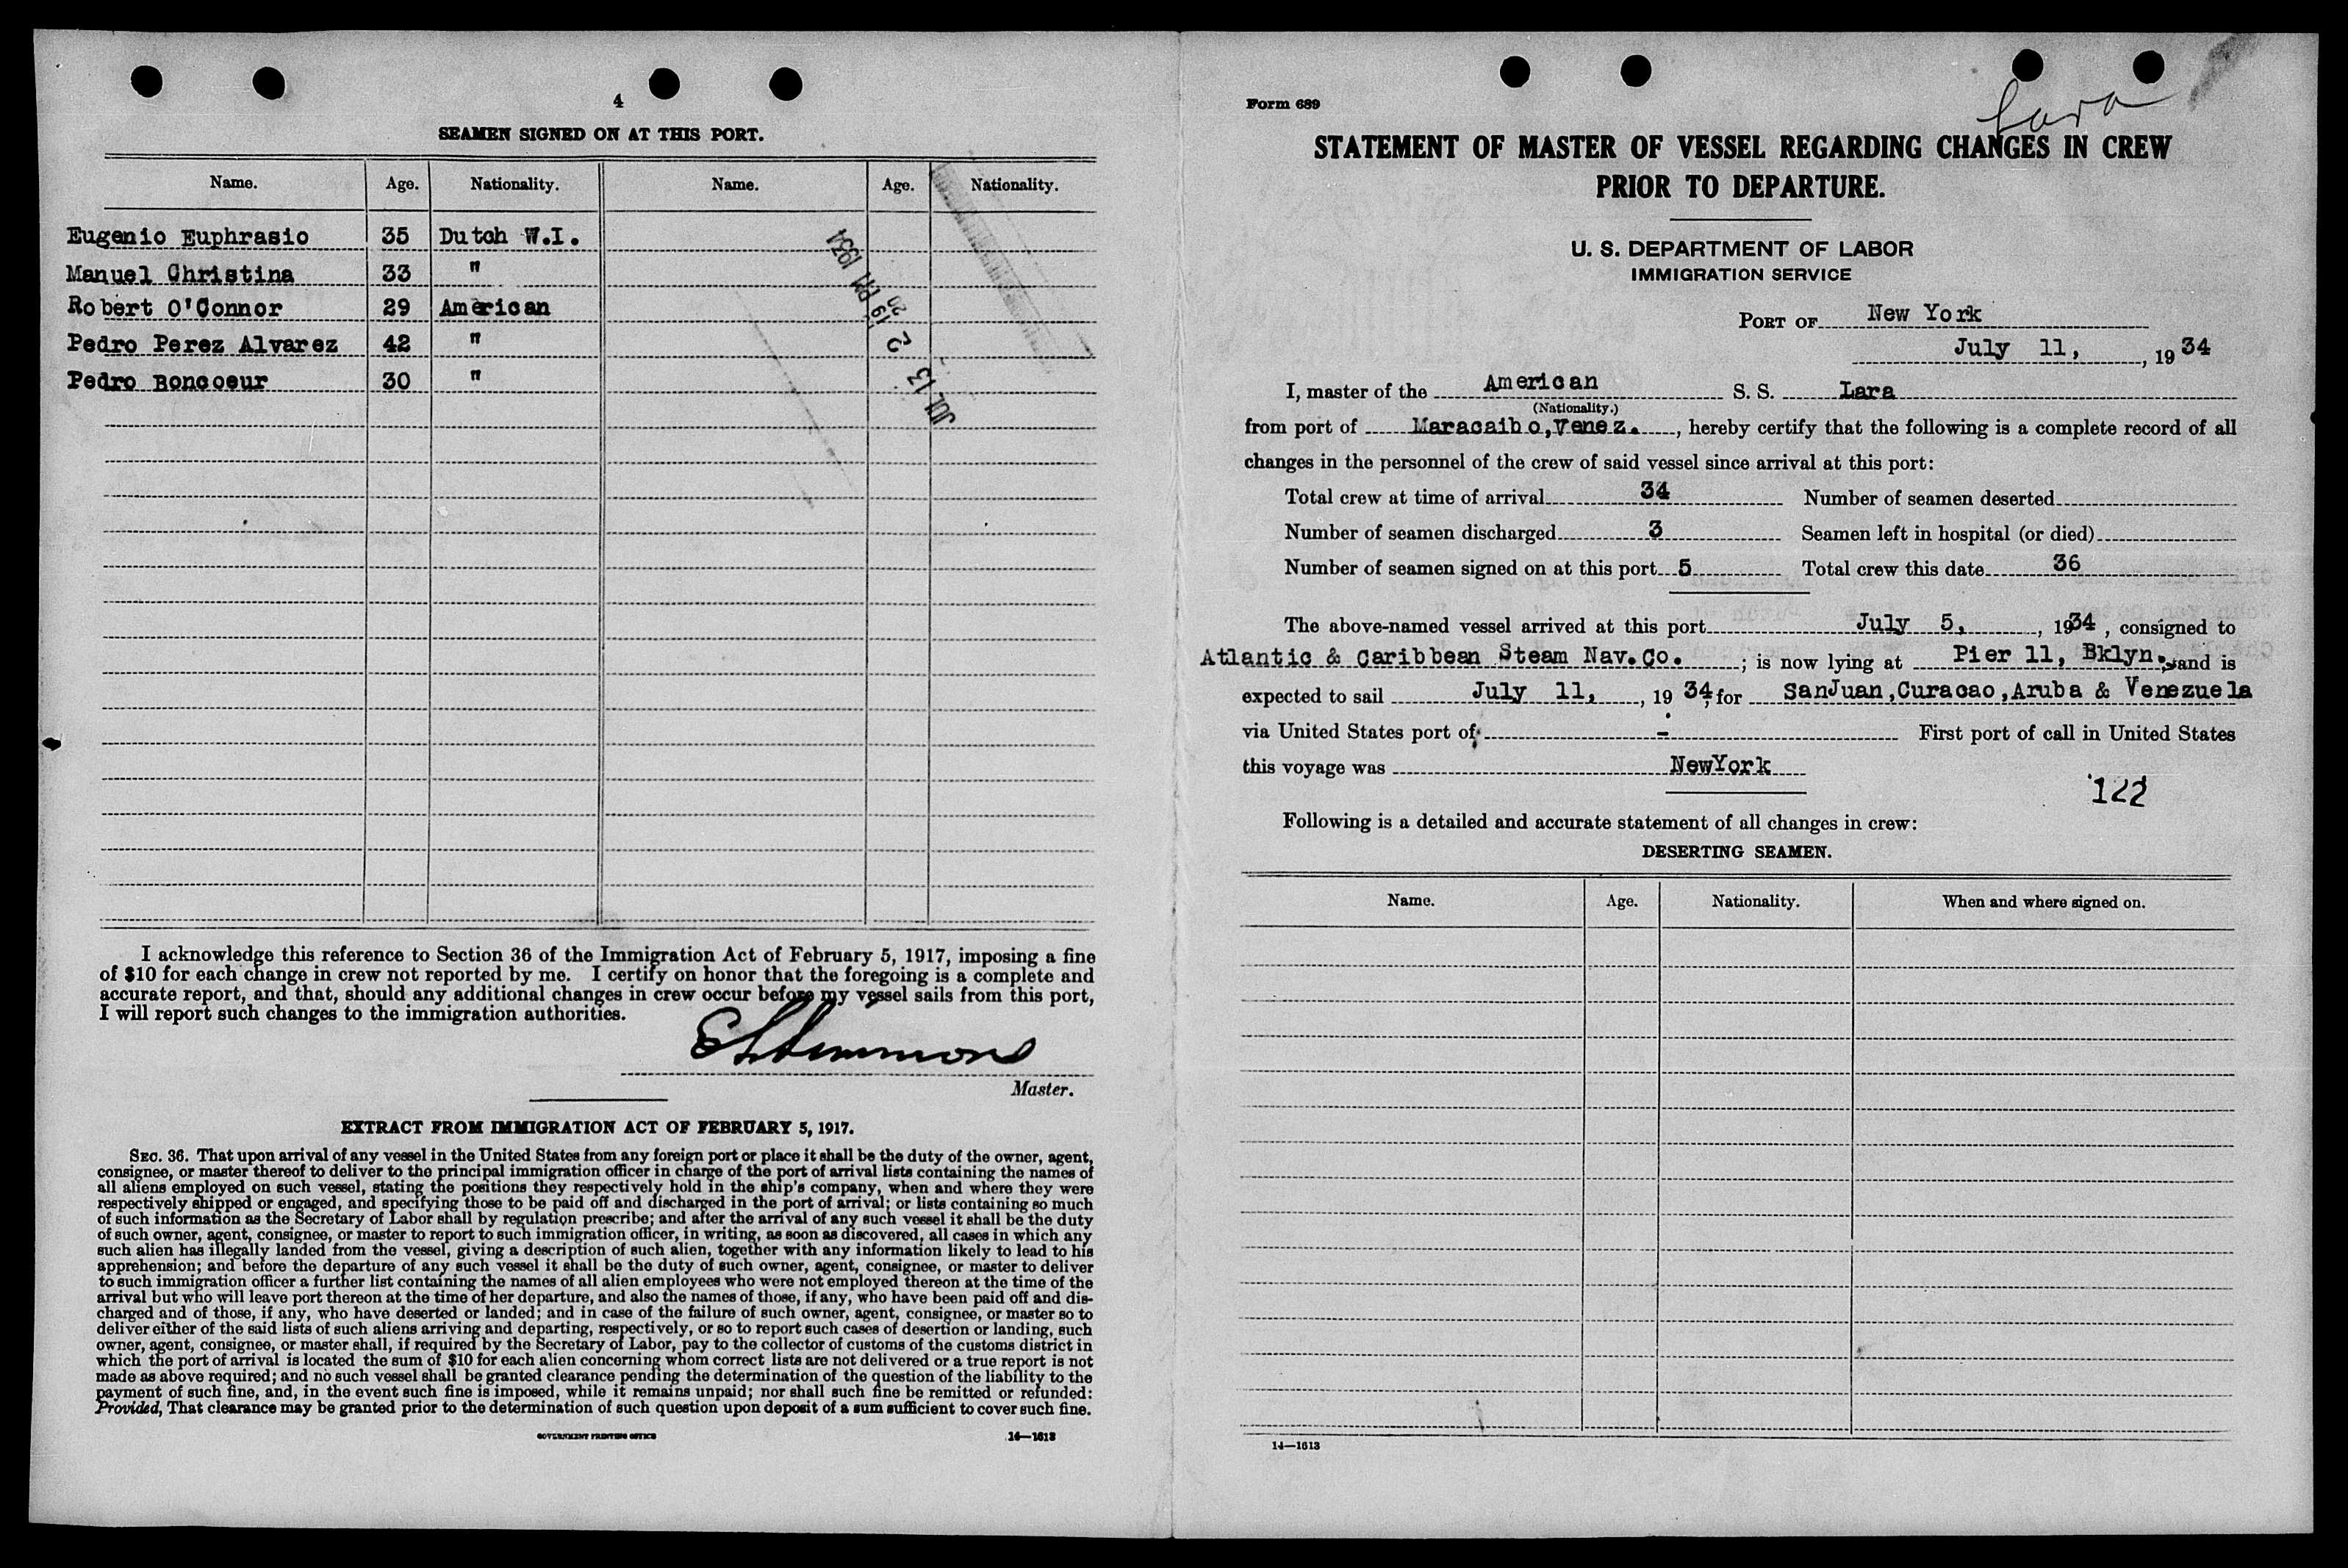 4
SEAMEN SIGNED ON AT THIS PORT.
Name. Age. Nationality. Name. Age. Nationality.
Eugenio Euphrasio 35 Dutch W.I.
Manuel Christina 33 "
Robert O'Connor 29 American
Pedro Perez Alvarez 42 "
Pedro Boncoeur 30 "
JUL 13 2 19 PM 1934
I acknowledge this reference to Section 36 of the Immigration Act of February 5, 1917, imposing a fine
of $10 for each change in crew not reported by me. I certify on honor that the foregoing is a complete and
accurate report, and that, should any additional changes in crew occur before my vessel sails from this port,
I will report such changes to the immigration authorities.
Master.
EXTRACT FROM IMMIGRATION ACT OF FEBRUARY 5, 1917.
SEC. 36. That upon arrival of any vessel in the United States from any foreign port or place it shall be the duty of the owner, agent,
consignee, or master thereof to deliver to the principal immigration officer in charge of the port of arrival lists containing the names of
all aliens employed on such vessel, stating the positions they respectively hold in the ship's company, when and where they were
respectively shipped or engaged, and specifying those to be paid off and discharged in the port of arrival; or lists containing so much
of such information as the Secretary of Labor shall by regulation prescribe; and after the arrival of any such vessel it shall be the duty
of such owner, agent, consignee, or master to report to such immigration officer, in writing, as soon as discovered, all cases in which any
such alien has illegally landed from the vessel, giving a description of such alien, together with any information likely to lead to his
apprehension; and before the departure of any such vessel it shall be the duty of such owner, agent, consignee, or master to deliver
to such immigration officer a further list containing the names of all alien employees who were not employed thereon at the time of the
arrival but who will leave port thereon at the time of her departure, and also the names of those, if any, who have been paid off and dis-
charged and of those, if any, who have deserted or landed; and in case of the failure of such owner, agent, consignee, or master so to
deliver either of the said lists of such aliens arriving and departing, respectively, or so to report such cases of desertion or landing, such
owner, agent, consignee, or master shall, if required by the Secretary of Labor, pay to the collector of customs of the customs district in
which the port of arrival is located the sum of $10 for each alien concerning whom correct lists are not delivered or a true report is not
made as above required; and no such vessel shall be granted clearance pending the determination of the question of the liability to the
payment of such fine, and, in the event such fine is imposed, while it remains unpaid; nor shall such fine be remitted or refunded:
Provided, That clearance may be granted prior to the determination of such question upon deposit of a sum sufficient to cover such fine.
GOVERNMENT PRINTING OFFICE 14—1613
Form 689
Lara
STATEMENT OF MASTER OF VESSEL REGARDING CHANGES IN CREW
PRIOR TO DEPARTURE.
U. S. DEPARTMENT OF LABOR
IMMIGRATION SERVICE
PORT OF New York
July 11, , 19 34
I, master of the American S. S. Lara
(Nationality.)
from port of Maracaibo,Venez. , hereby certify that the following is a complete record of all
changes in the personnel of the crew of said vessel since arrival at this port:
Total crew at time of arrival 34 Number of seamen deserted
Number of seamen discharged 3 Seamen left in hospital (or died)
Number of seamen signed on at this port 5 Total crew this date 36
The above-named vessel arrived at this port July 5, , 1934 , consigned to
Atlantic & Caribbean Steam Nav.Co. ; is now lying at Pier 11, Bklyn. , and is
expected to sail July 11, , 19 34, for SanJuan,Curacao,Aruba & Venezuela
via United States port of - First port of call in United States
this voyage was NewYork
122
Following is a detailed and accurate statement of all changes in crew:
DESERTING SEAMEN.
Name. Age. Nationality. When and where signed on.
14—1613